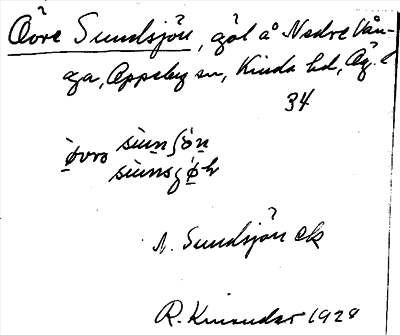 Övre Sundsjön, göl å Nedre Vån-
ga, Oppeby sn, Kinda hd, Ög. l
34
øvrə sùnʃǿn
N. Sundsjön ek
R. Kinander 1928